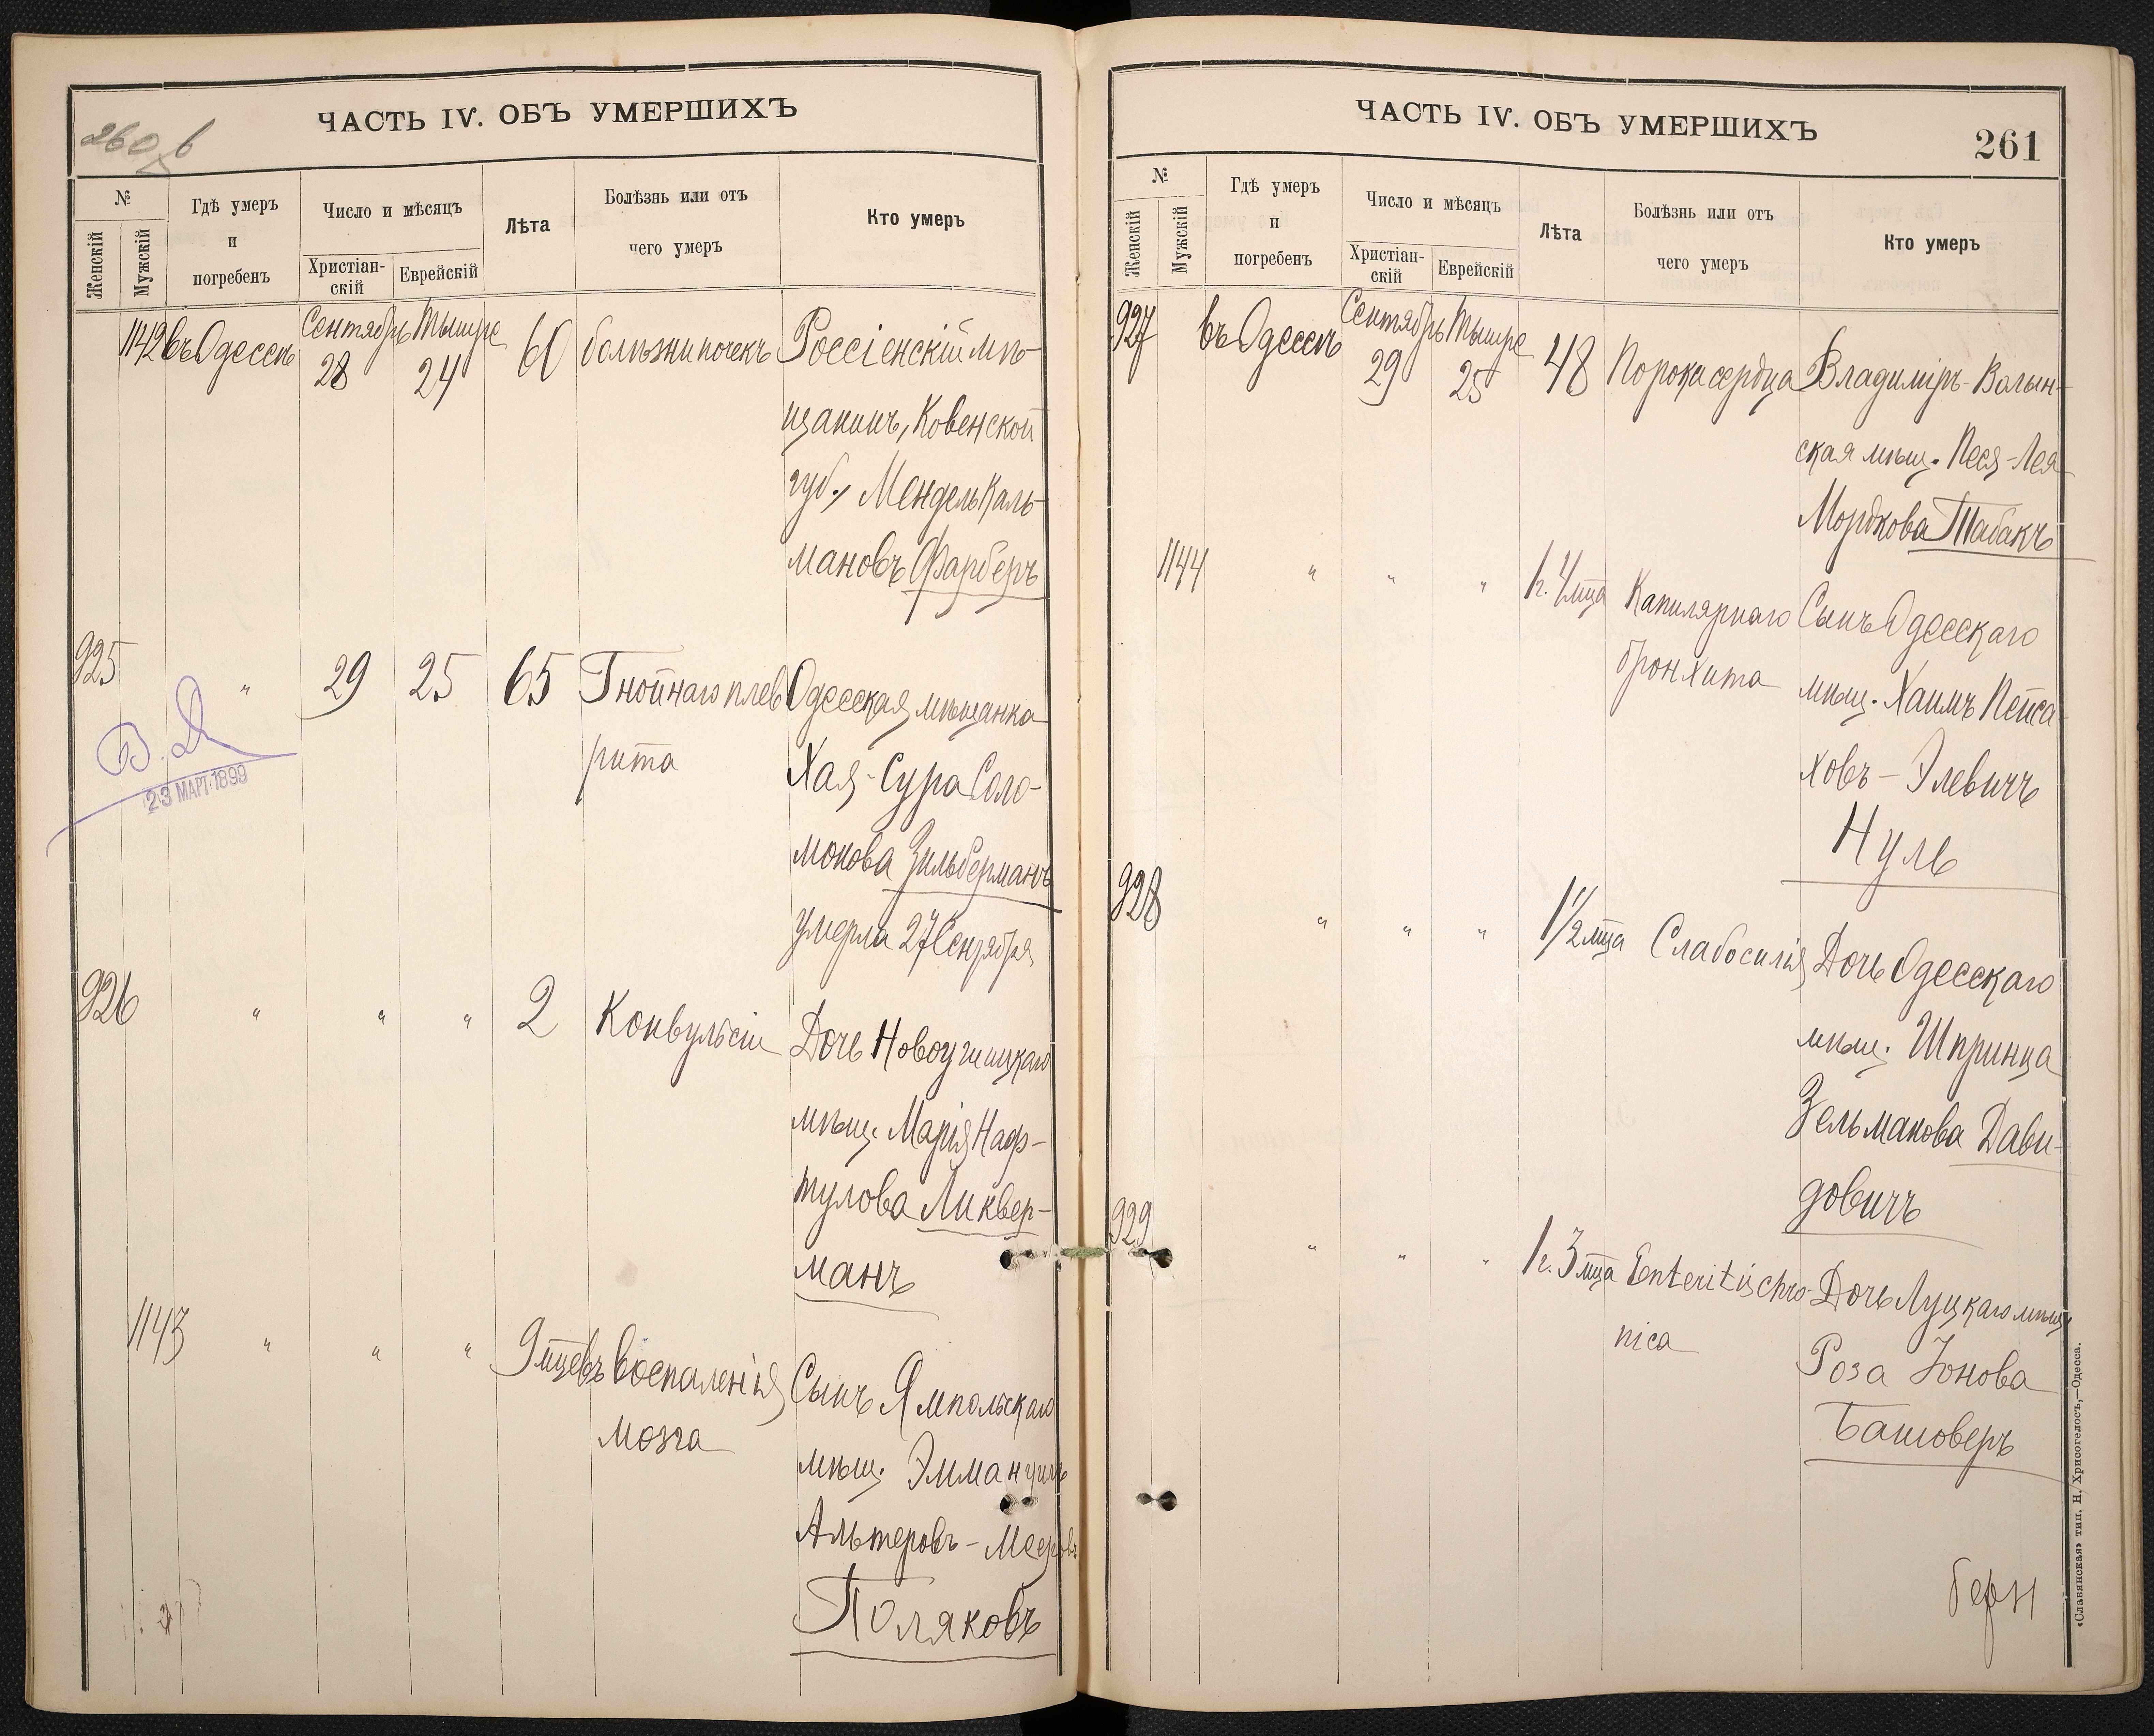 260 б
ЧАСТЬ IV. ОБЪ УМЕРШИХЪ
№
Женскій
Мужскій
Гдѣ умеръ
и
погребенъ
Число и мѣсяцъ
Христіан-
скій
Еврейскій
Лѣта
Болѣзнь или отъ
чего умеръ
Кто умеръ
1142 въ Одессѣ Сентябрь 28 Тышре 24 60 болѣзни почекъ Россіенскій мѣ-
щанинъ, Ковенской
губ., Мендель Каль-
мановъ Фарберъ
925 " 29 25 65 Гнойнаго плев Одесская мѣщанка
рита Хая-Сура Соло-
монова Зильберманъ
умерла 27 Сентября
В. Д
23 МАРТ 1899
926 " " " 2 Конвульсіи Дочь Новоушицкаго
мѣщ. Марія Наф-
тулова Ликвер-
манъ
1143 " " " 9 мцевъ Воспаленія Сынъ Ямпольскаго
мозга мѣщ. Эммануилъ
Альтеровъ-Мееровъ
Поляковъ
ЧАСТЬ IV. ОБЪ УМЕРШИХЪ
261
№
Женскій
Мужскій
Гдѣ умеръ
и
погребенъ
Число и мѣсяцъ
Христіан-
скій
Еврейскій
Лѣта
Болѣзнь или отъ
чего умеръ
Кто умеръ
927 въ Одессѣ Сентябрь 29 Тышре 25 48 Порока сердца Владиміръ-Волын-
ская мѣщ. Песя-Лея
Мордкова Табакъ
1144 " " " 1 г. 4 мца Капилярнаго Сынъ Одесскаго
бронхита мѣщ. Хаимъ Пейса-
ховъ-Элевичъ
Нуль
928 " " " 1 1/2 мца Слабосилія Дочь Одесскаго
мѣщ. Шпринца
Зельманова Дави-
довичъ
929 " " " 1 г. 3 мца Enteritis chro- Дочь Луцкаго мѣщ.
nica Роза Іонова
Башоверъ
«Славянская» тип. Н. Хрисогелосъ,—Одесса.